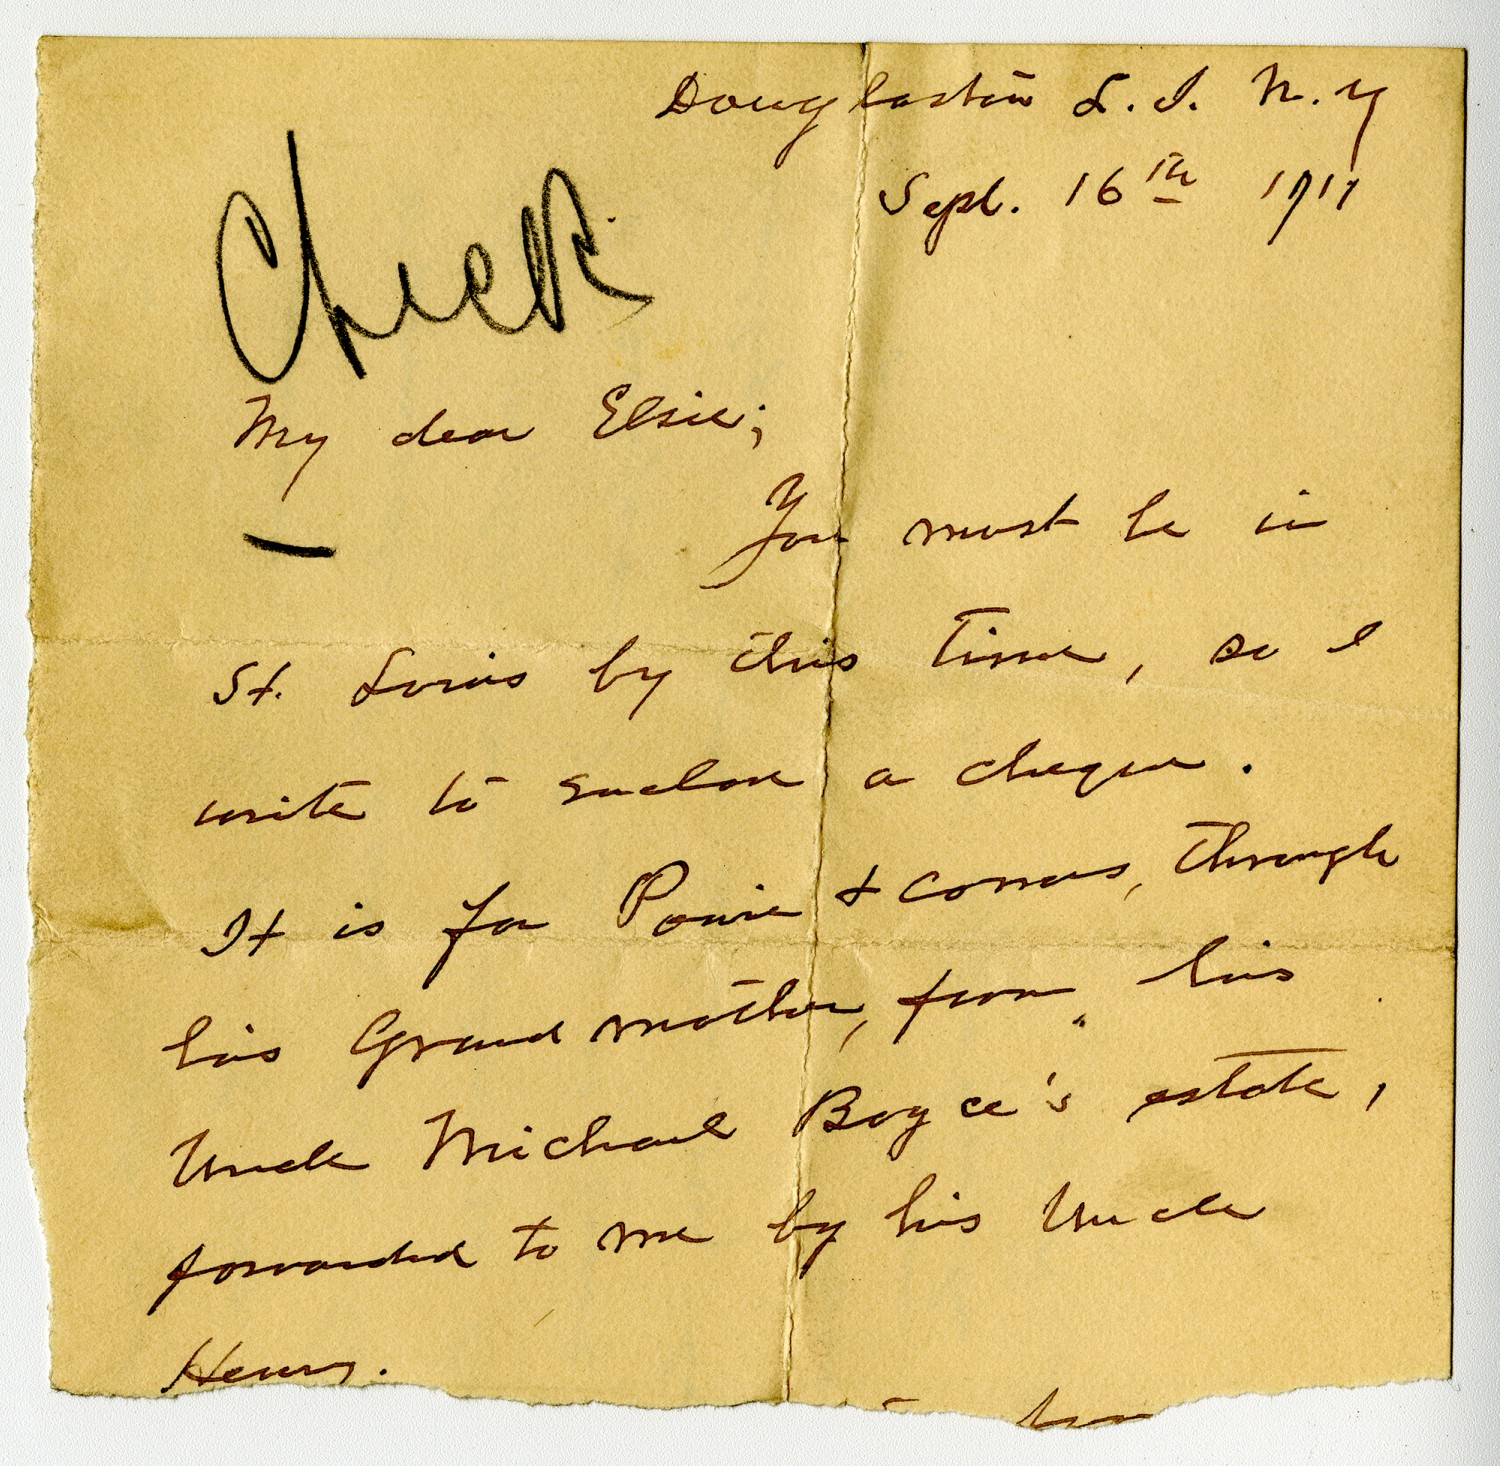 Douglaston L.I. N.Y
Sept. 16th 1911
Check
My dear Elsie;
You must be in
St. Louis by this time, so I
write to enclose a cheque.
It is for Powie & comes, through
his Grandmother, from his
Uncle Michael Boyce's estate,
forwarded to me by his Uncle
Henry.